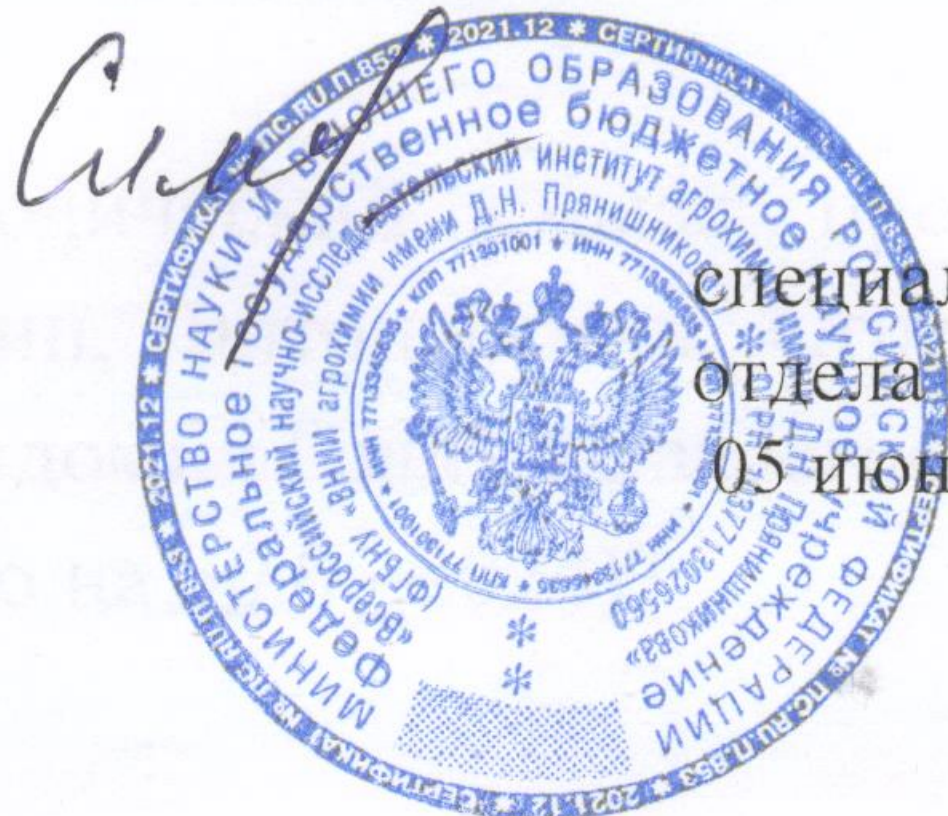 2021.12 * СЕРТИФИКАТ № ПС.RU.П.853 * 2021.12 * СЕРТИФИКАТ № ПС.RU.П.853 * 2021.12 * СЕРТИФИКАТ № ПС.RU.П.853
МИНИСТЕРСТВО НАУКИ И ВЫСШЕГО ОБРАЗОВАНИЯ РОССИЙСКОЙ ФЕДЕРАЦИИ
Федеральное государственное бюджетное научное учреждение
«Всероссийский научно-исследовательский институт агрохимии имени Д.Н. Прянишникова»
(ФГБНУ «ВНИИ агрохимии имени Д.Н. Прянишникова») * ОГРН 1037713026560
КПП 771301001 * ИНН 7713345635 * КПП 771301001 * ИНН 7713345635
специал
отдела
05 июн